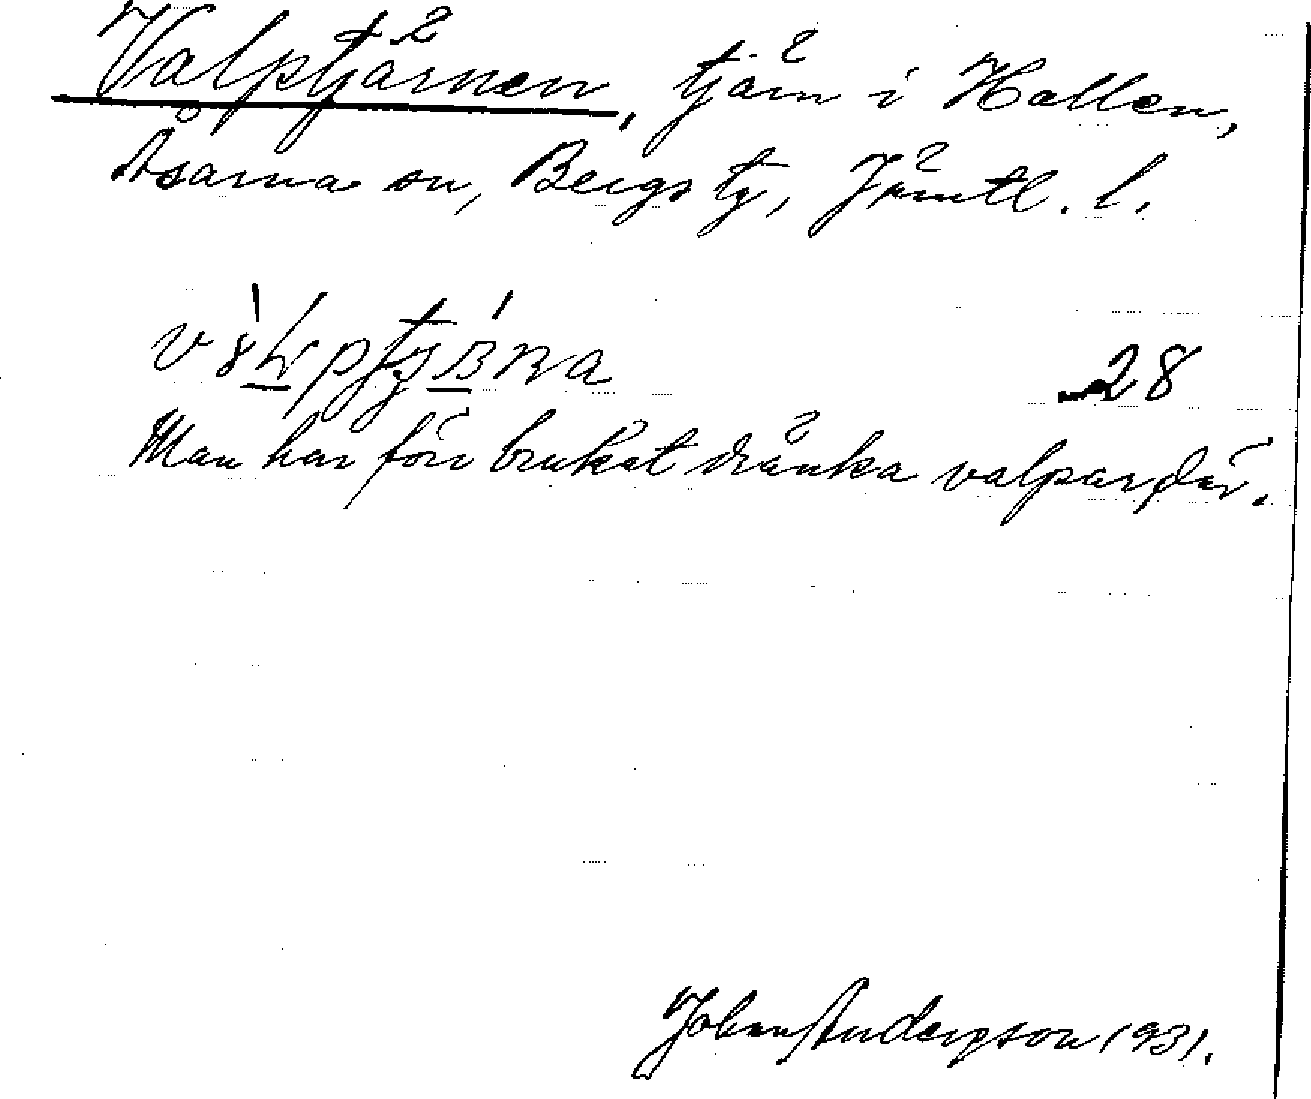 Valptjärnen, tjärn i Hallen,
Åsarna sn, Bergs tg, Jämtl. l.
28
Man har förr brukat dränka valpar där.
Johan Andersson 1931.